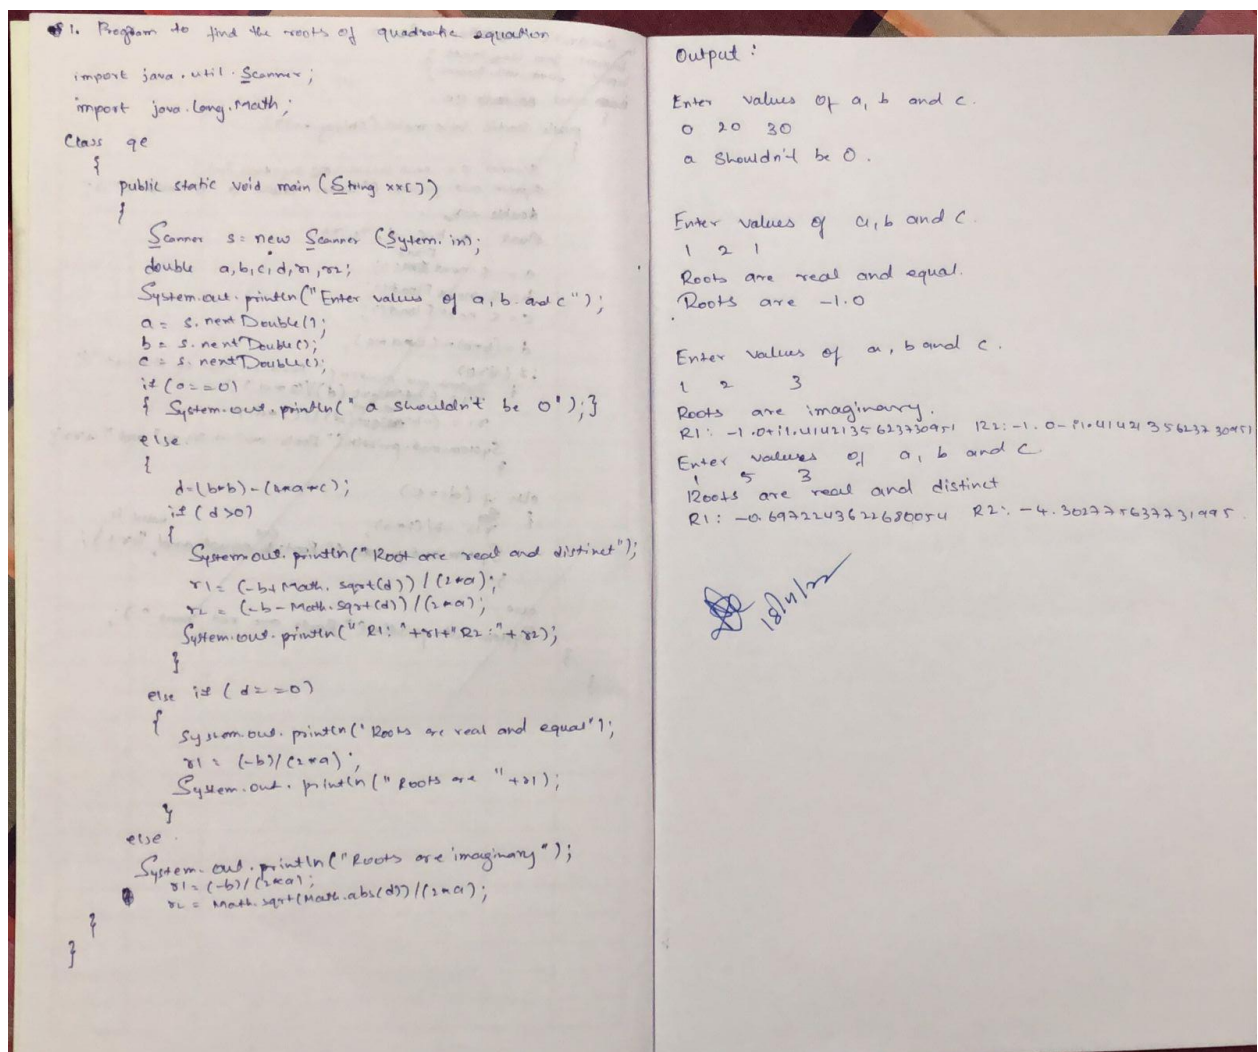 1. Program to find the roots of quadratic equation
import java.util.Scanner;
import java.lang.Math;
Class qe
{
public static void main (String xx[])
{
Scanner s = new Scanner (System.in);
double a,b,c,d,r1,r2;
System.out.println("Enter values of a, b and c");
a = s.nextDouble();
b = s.nextDouble();
c = s.nextDouble();
if (a==0)
{ System.out.println(" a shouldn't be 0"); }
else
{
d=(b*b)-(4*a*c);
if (d>0)
{
System.out.println("Root are real and distinct");
r1 = (-b+Math.sqrt(d))/(2*a);
r2 = (-b-Math.sqrt(d))/(2*a);
System.out.println("R1: "+r1+"R2:"+r2);
}
else if (d==0)
{
System.out.println("Roots are real and equal");
r1 = (-b)/(2*a);
System.out.println("Roots are "+r1);
}
else
System.out.println("Roots are imaginary");
r1 = (-b)/(2*a);
r2 = Math.sqrt(Math.abs(d))/(2*a);
}
}
Output :
Enter values of a, b and c.
0 20 30
a Shouldn't be 0.
Enter values of a, b and c.
1 2 1
Roots are real and equal.
Roots are -1.0
Enter values of a, b and c.
1 2 3
Roots are imaginary.
R1: -1.0+i1.4142135623730951 R2: -1.0-i1.4142135623730951
Enter values of a, b and c
1 5 3
Roots are real and distinct
R1: -0.6972243622680054 R2: -4.302775637731995
18/11/22